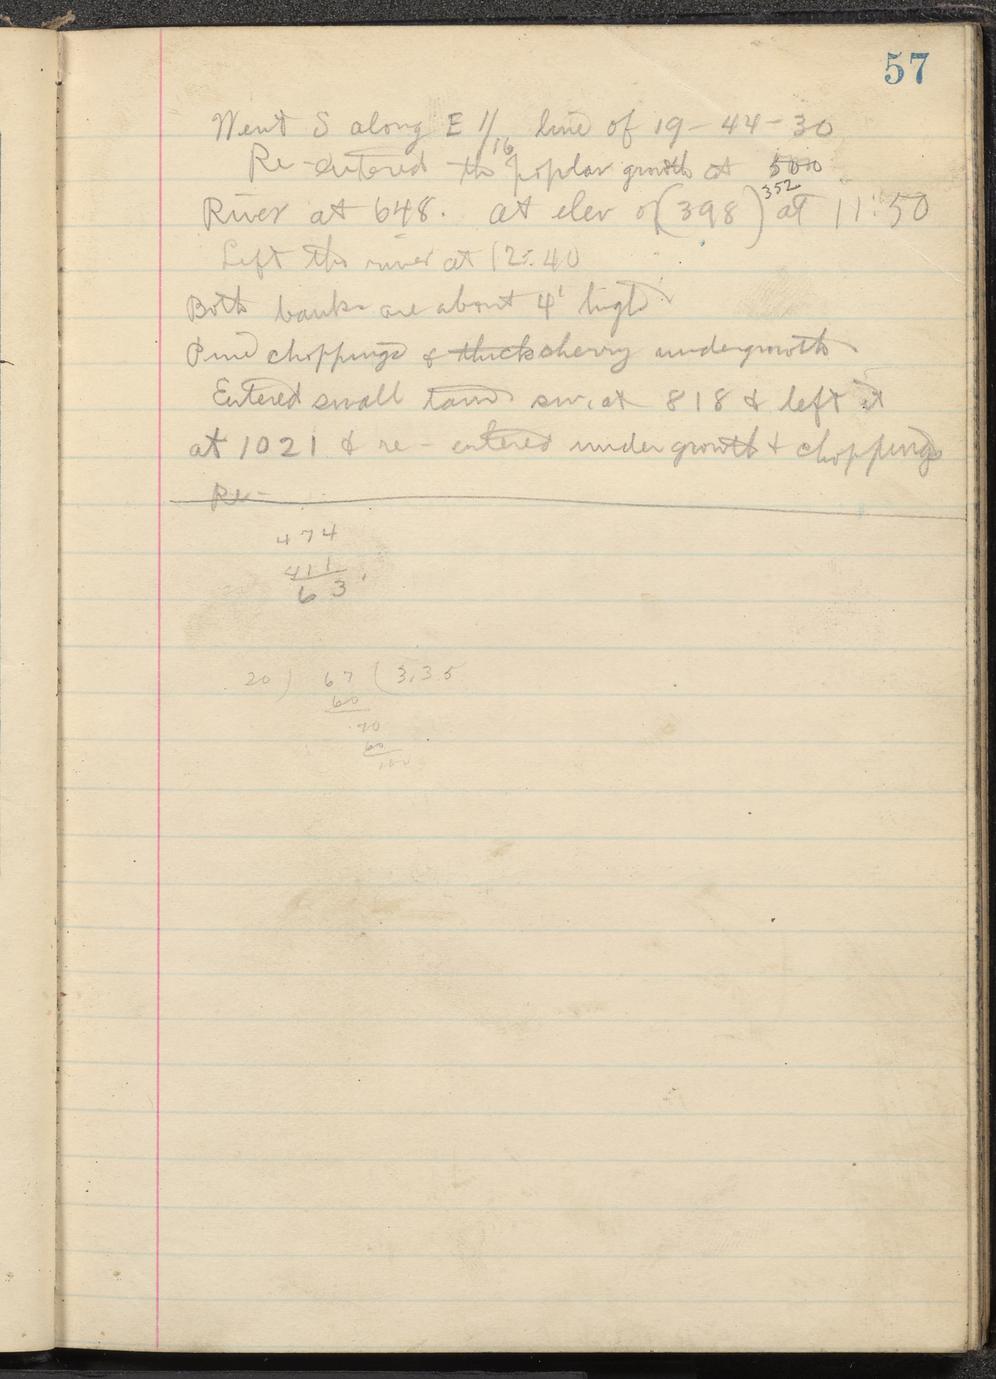 57
Went S along E 1/16 line of 19-44-30
Re-entered the poplar growth at 500
352
River at 648. at elev of (398) at 11:50
Left the river at 12:40
Both banks are about 4' high
Pine choppings & thick cherry undergrowth
Entered small tam sw. at 818 & left it
at 1021 & re-entered undergrowth & choppings
Re-
474
411
63
20) 67 (3.35
60
70
60
100